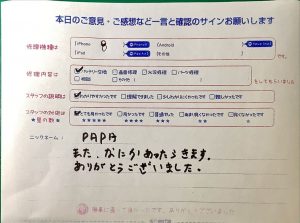 本日のご意見・ご感想など一言と確認のサインお願いします
修理機種は
iPhone 8
Android
iPad
その他
修理内容は
バッテリー交換
画面修理
水没修理
パーツ修理
その他
をしてもらいました
スタッフの説明は
わかりやすかったです
理解できました
少しわかりにくかったです
難しかったです
スタッフの対応は
★星の数★
とても良かったです
良かったです
普通でした
ニックネーム:
PAPA
また、なにかあったらきます。
ありがとうございました。